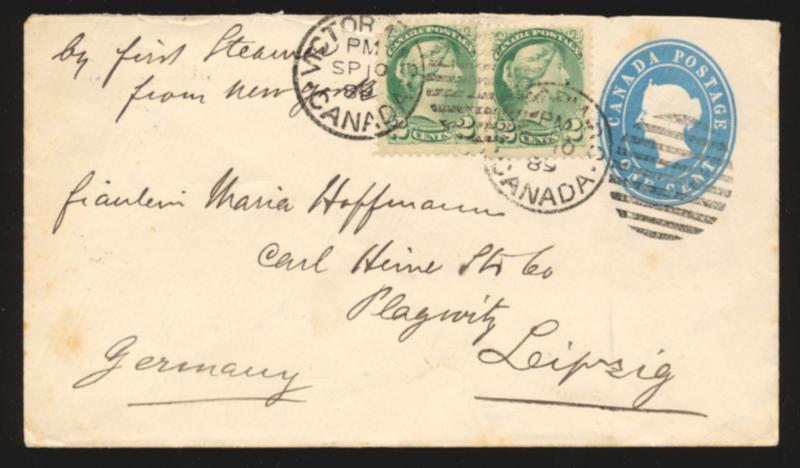 by first Steamer
from new york
VICTORIA
PM
SP 10
89
CANADA
CANADA POSTAGE
2 CENTS 2
CANADA POSTAGE
2 CENTS 2
PM
10
89
CANADA
CANADA POSTAGE
ONE CENT
fräulein Maria Hoffmann
Carl Heine Str 60
Plagwitz
Leipzig
Germany